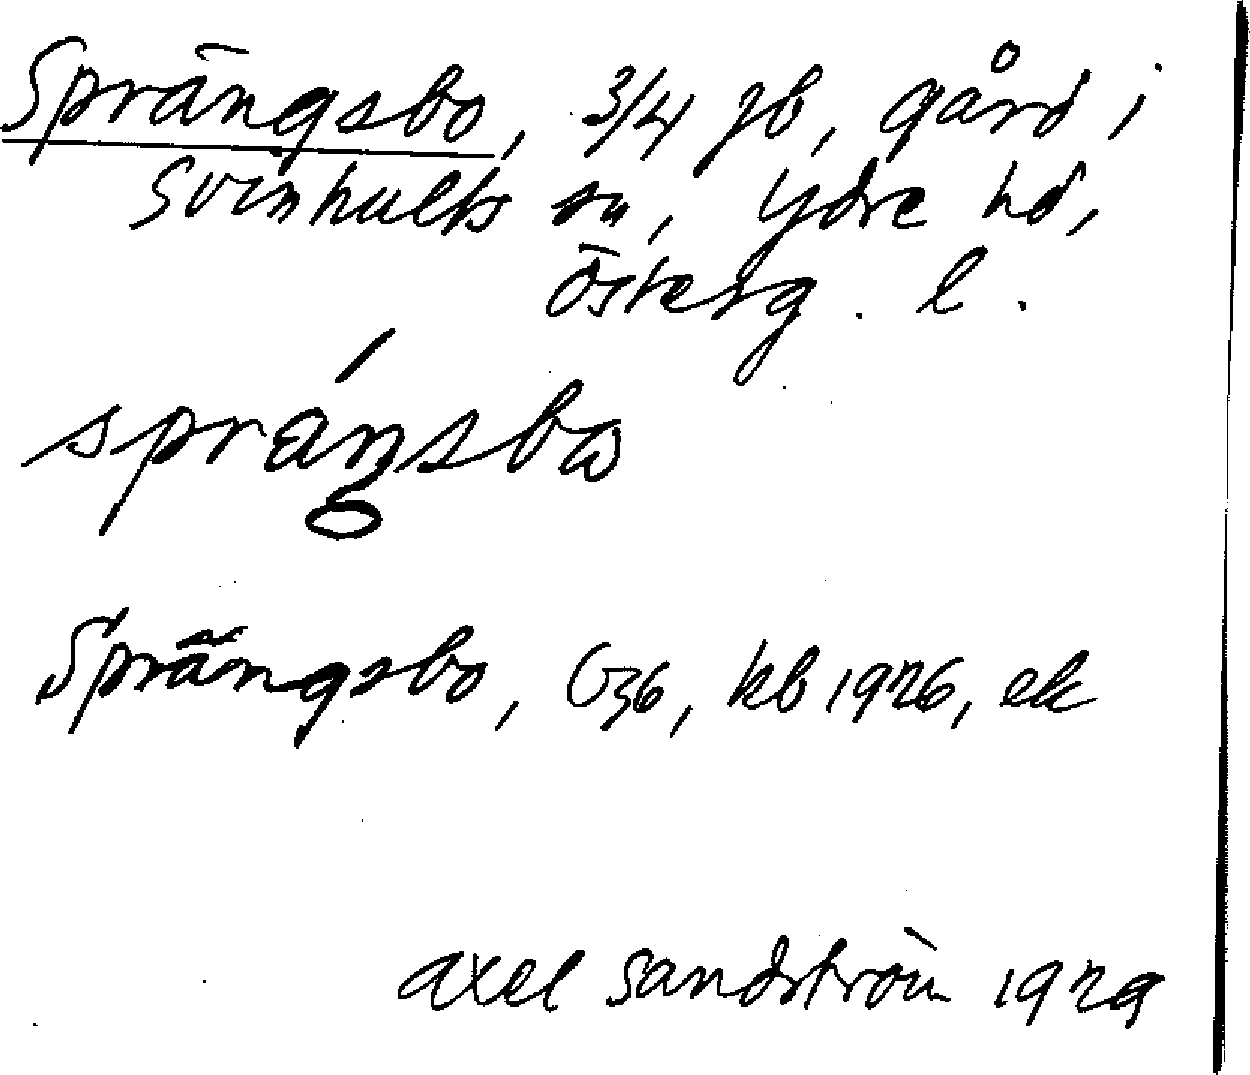 Sprängsbo, 3/4 jb, gård i
Svinhults sn, Ydre hd,
Österg. l.
Sprängsbo, G36, kb 1926, ek
Axel Sandström 1929